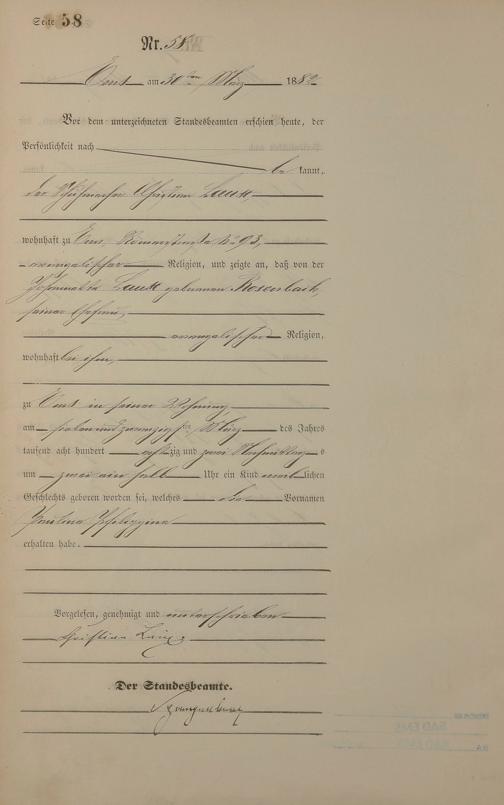 Seite 58
Nr. 58
Ems am 30ten März 1882
Vor dem unterzeichneten Standesbeamten erschien heute, der
Persönlichkeit nach
be kannt,
der Schuhmacher Christian
wohnhaft zu Ems, Römerstraße No 93,
evangelischer Religion, und zeigte an, daß von der
geborenen Rosenbach,
seiner Ehefrau,
evangelischer Religion,
wohnhaft bei ihm,
zu Ems in seiner Wohnung
am sieben und zwanzigsten März des Jahres
tausend acht hundert achtzig und zwei Nachmittags
um zwei ein halb Uhr ein Kind weiblichen
Geschlechts geboren worden sei, welches die Vornamen
Paulina Philippina
erhalten habe.
Vorgelesen, genehmigt und unterschrieben
Christian
Der Standesbeamte.
BAD EMS